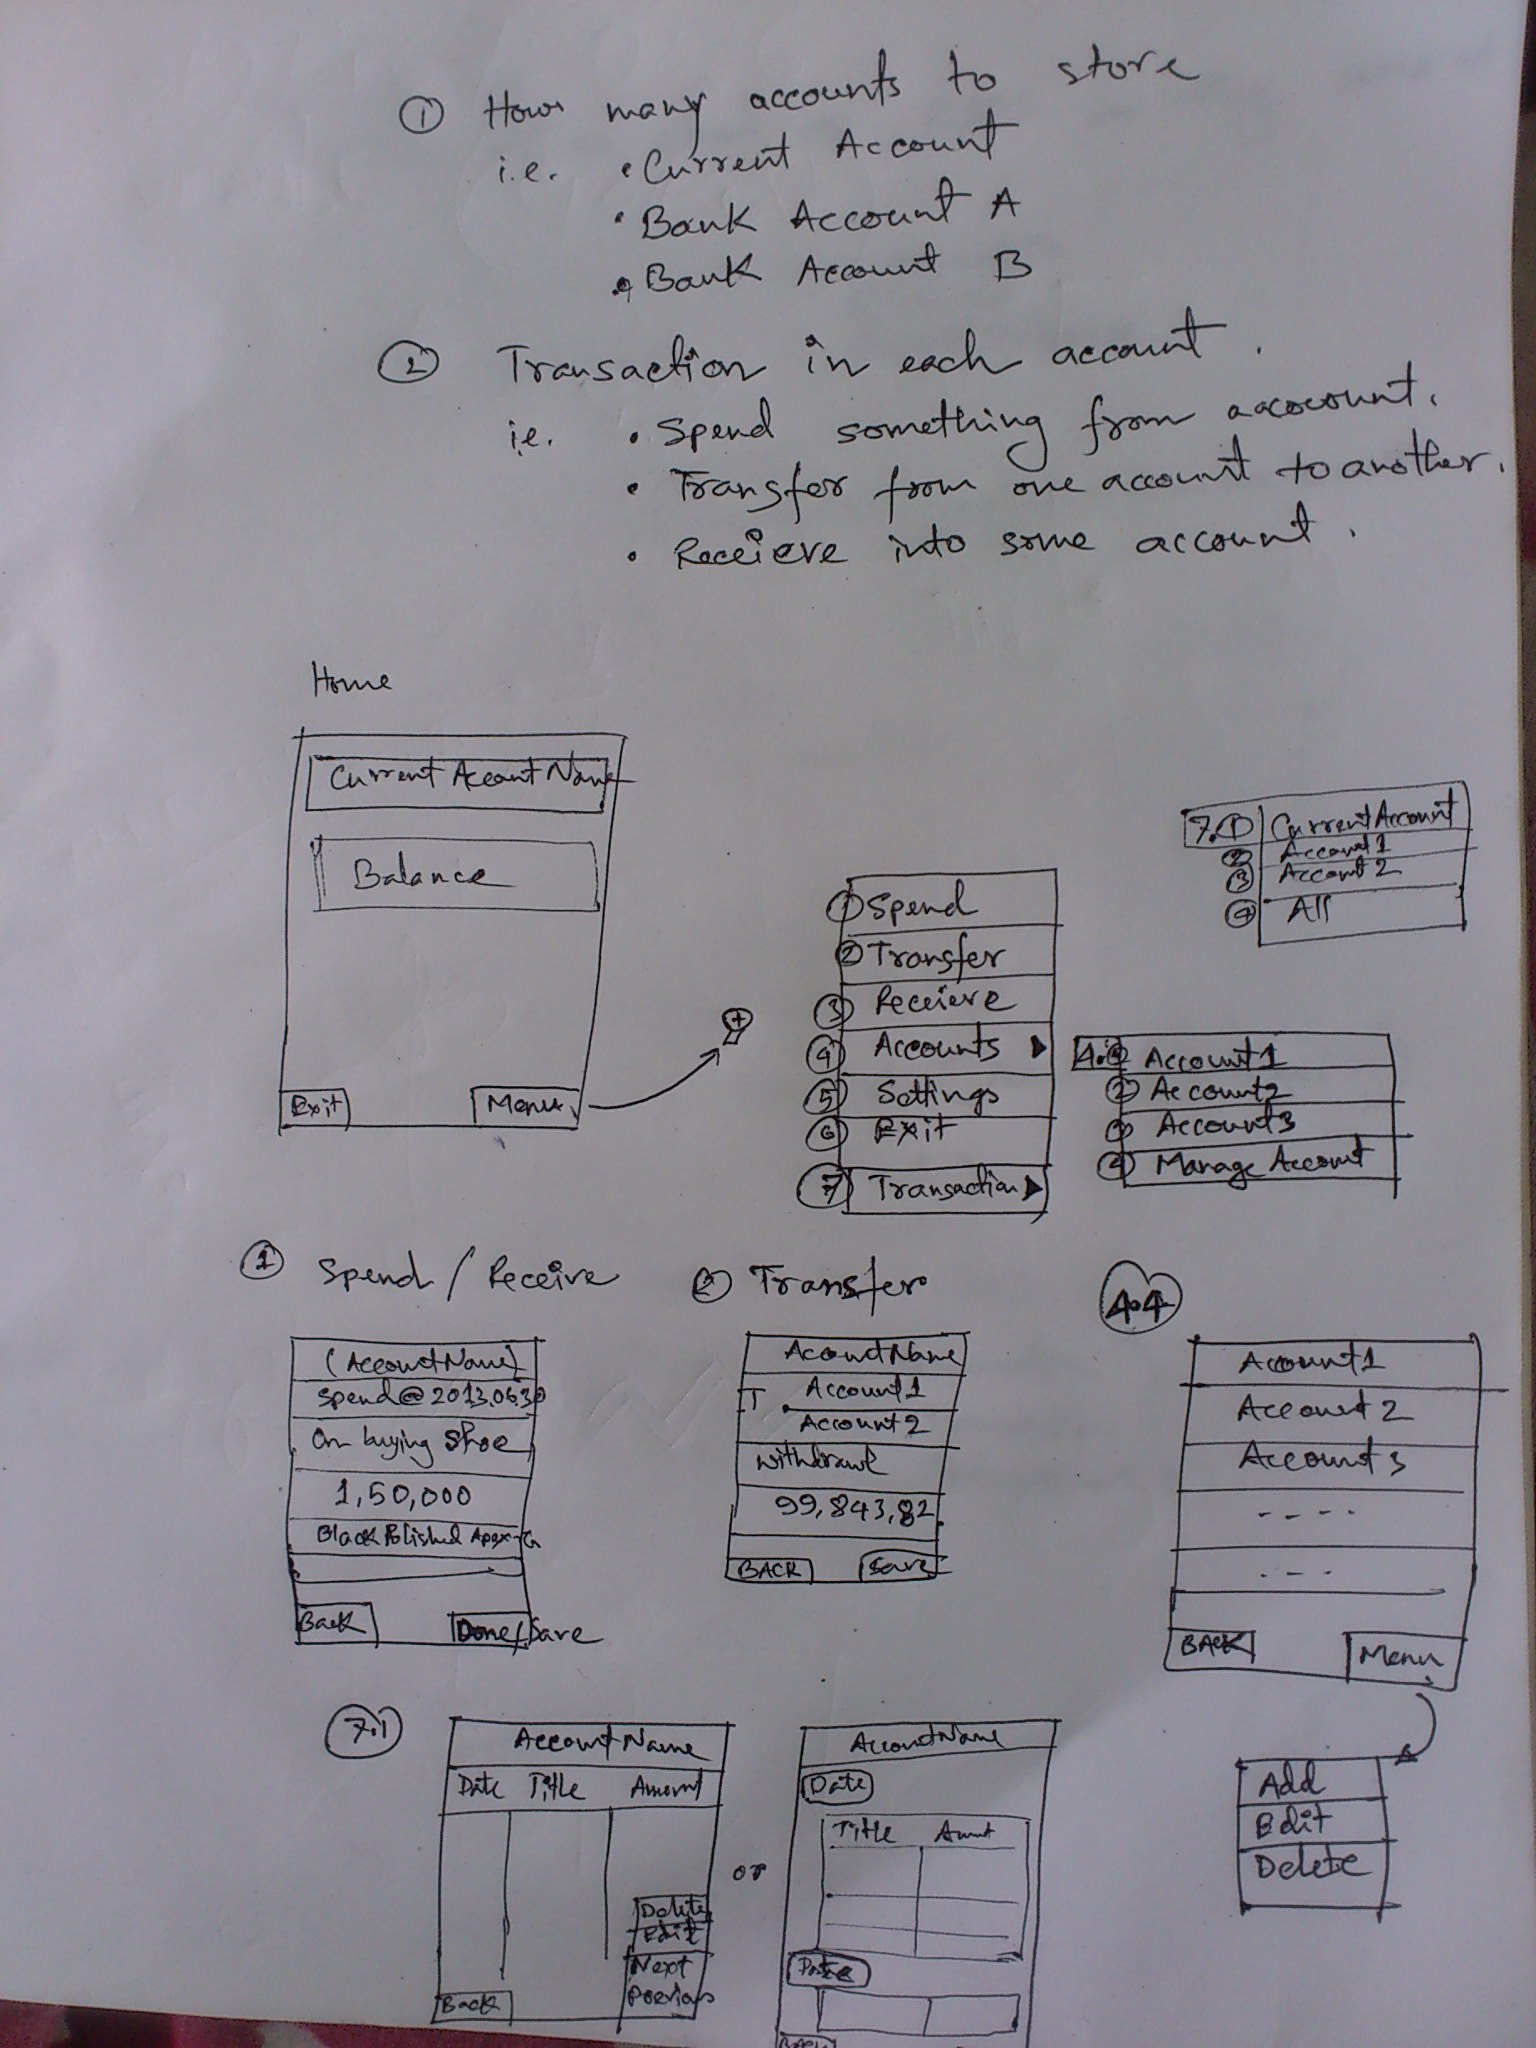 ① How many accounts to store
i.e. • Current Account
• Bank Account A
• Bank Account B
② Transaction in each account.
i.e. • Spend something from acocount.
• Transfer from one account to another.
• Receieve into some account.
Home
Current Account Name
Balance
Exit
Menu
① Spend
② Transfer
③ Receieve
④ Accounts ▶
⑤ Settings
⑥ Exit
⑦ Transaction ▶
7.① Current Account
② Account 1
③ Account 2
④ All
Account1
② Account2
③ Account3
④ Manage Account
① Spend / Receive
(Account Name)
Spend@2013.06.30
On buying Shoe
1,50,000
Black Polished Apex-G
Back
Done/Save
② Transfer
Account Name
T Account1
Account2
withdrawl
99,843,82
BACK
Save
4.4
Account1
Account 2
Account3
- - - -
- - - -
BACK
Menu
Add
Edit
Delete
7.1
Account Name
Date Title Amount
Delite
Edit
Next
Previous
Back
or
Account Name
Date
Title Amnt
Date
Back